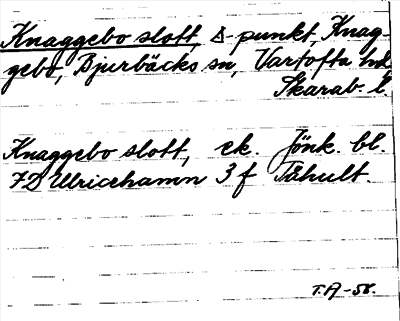 Knaggebo slott, Δ-punkt, Knag-
gebo, Bjurbäcks sn, Vartofta hd
Skarab. l.
Knaggebo slott, ek. Jönk. bl.
7D Ulricehamn 3 f Tåhult.
T.A-58.